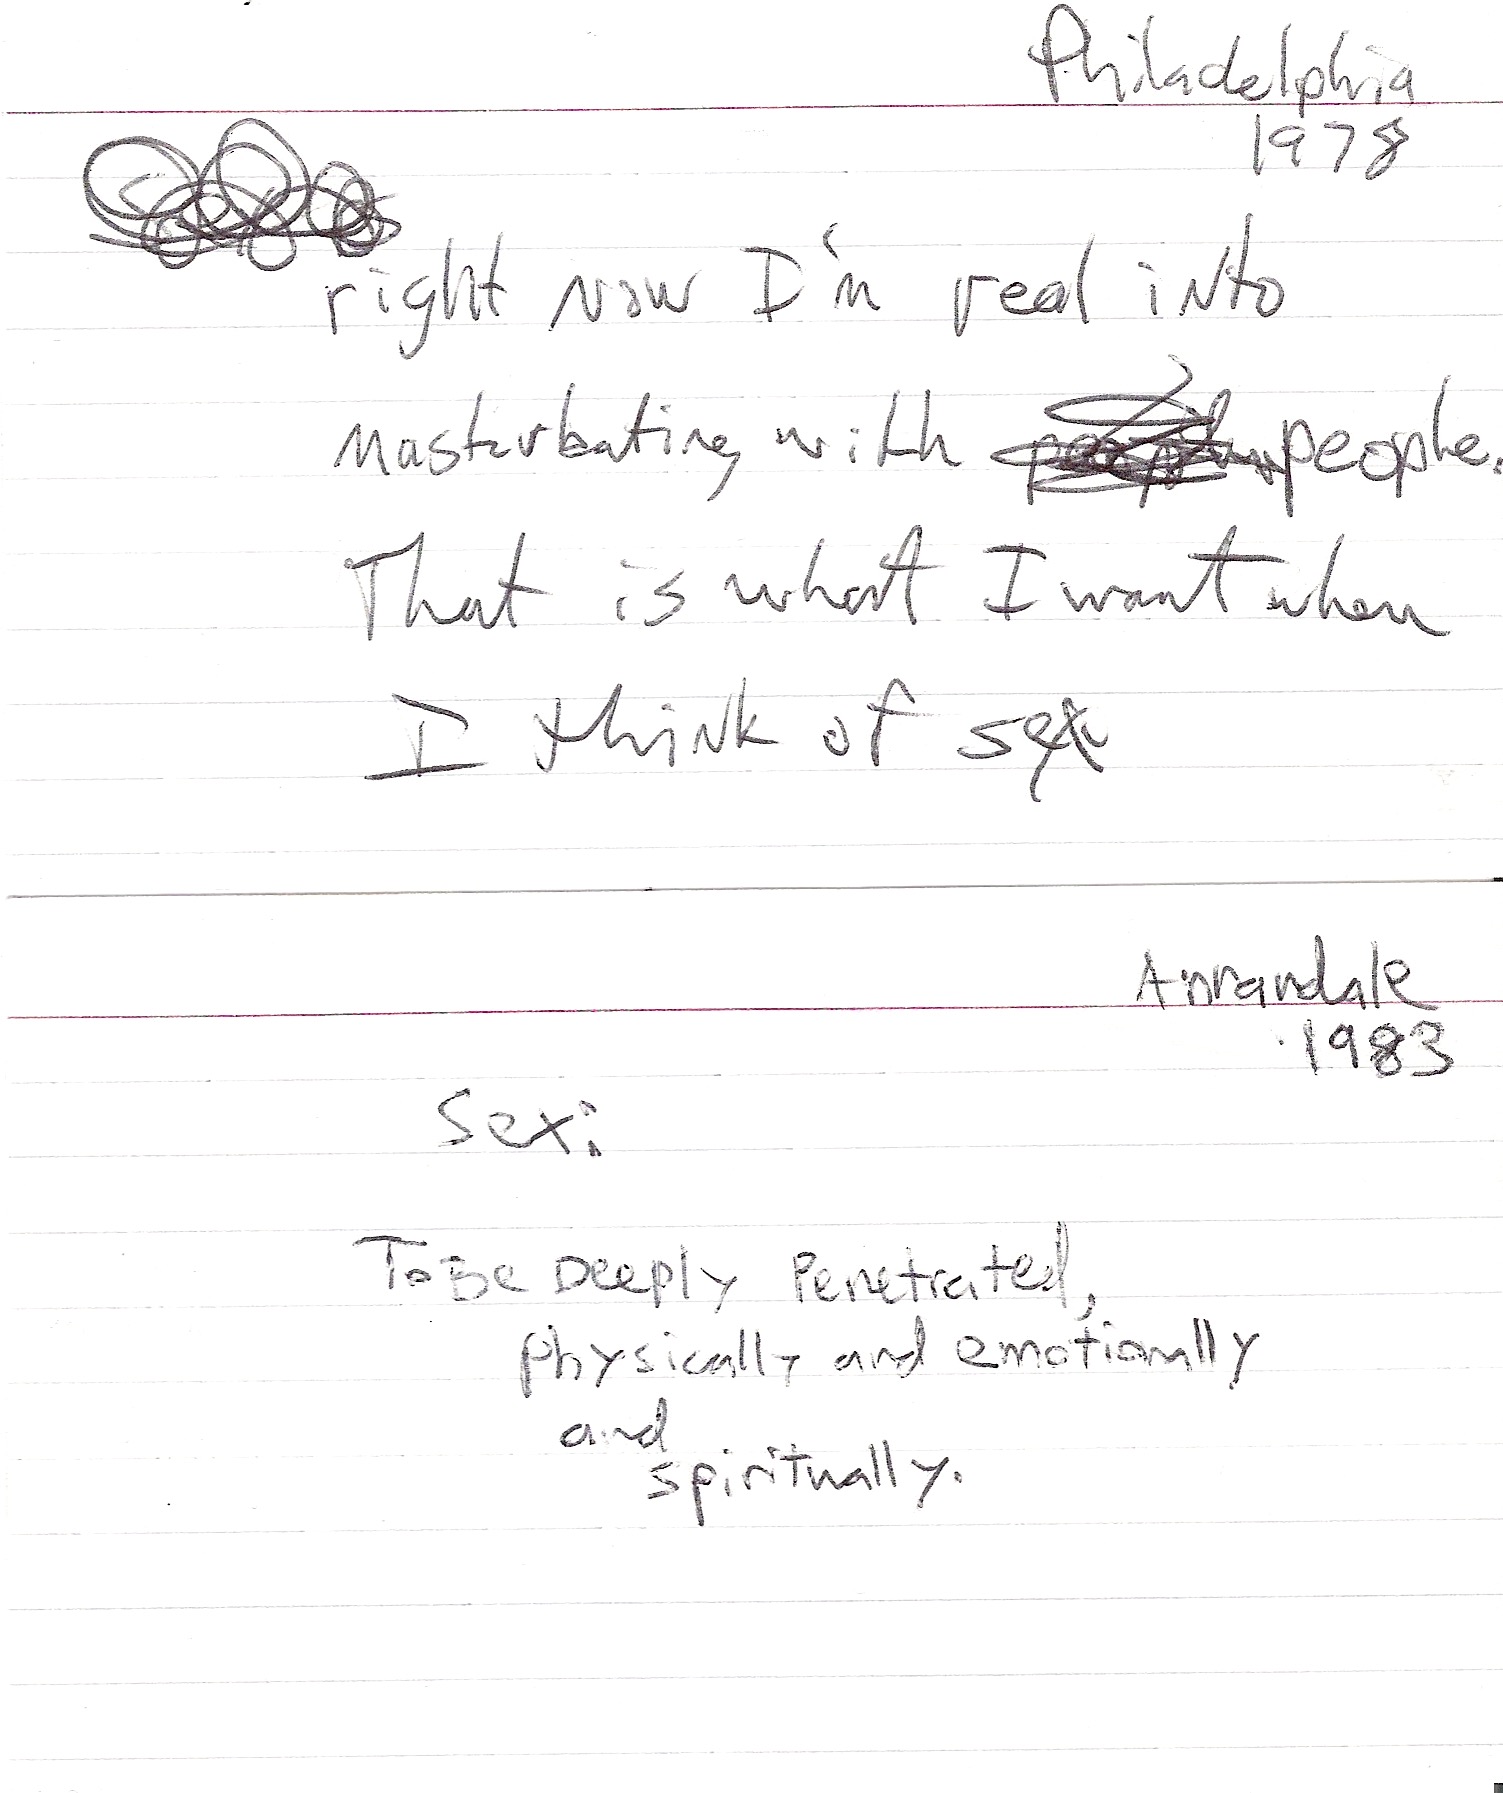 Philadelphia
1978
right now I'm real into
masturbating with people.
That is what I want when
I think of sex
Annandale
1983
Sex:
To Be Deeply Penetrated,
physically and emotionally
and
spiritually.